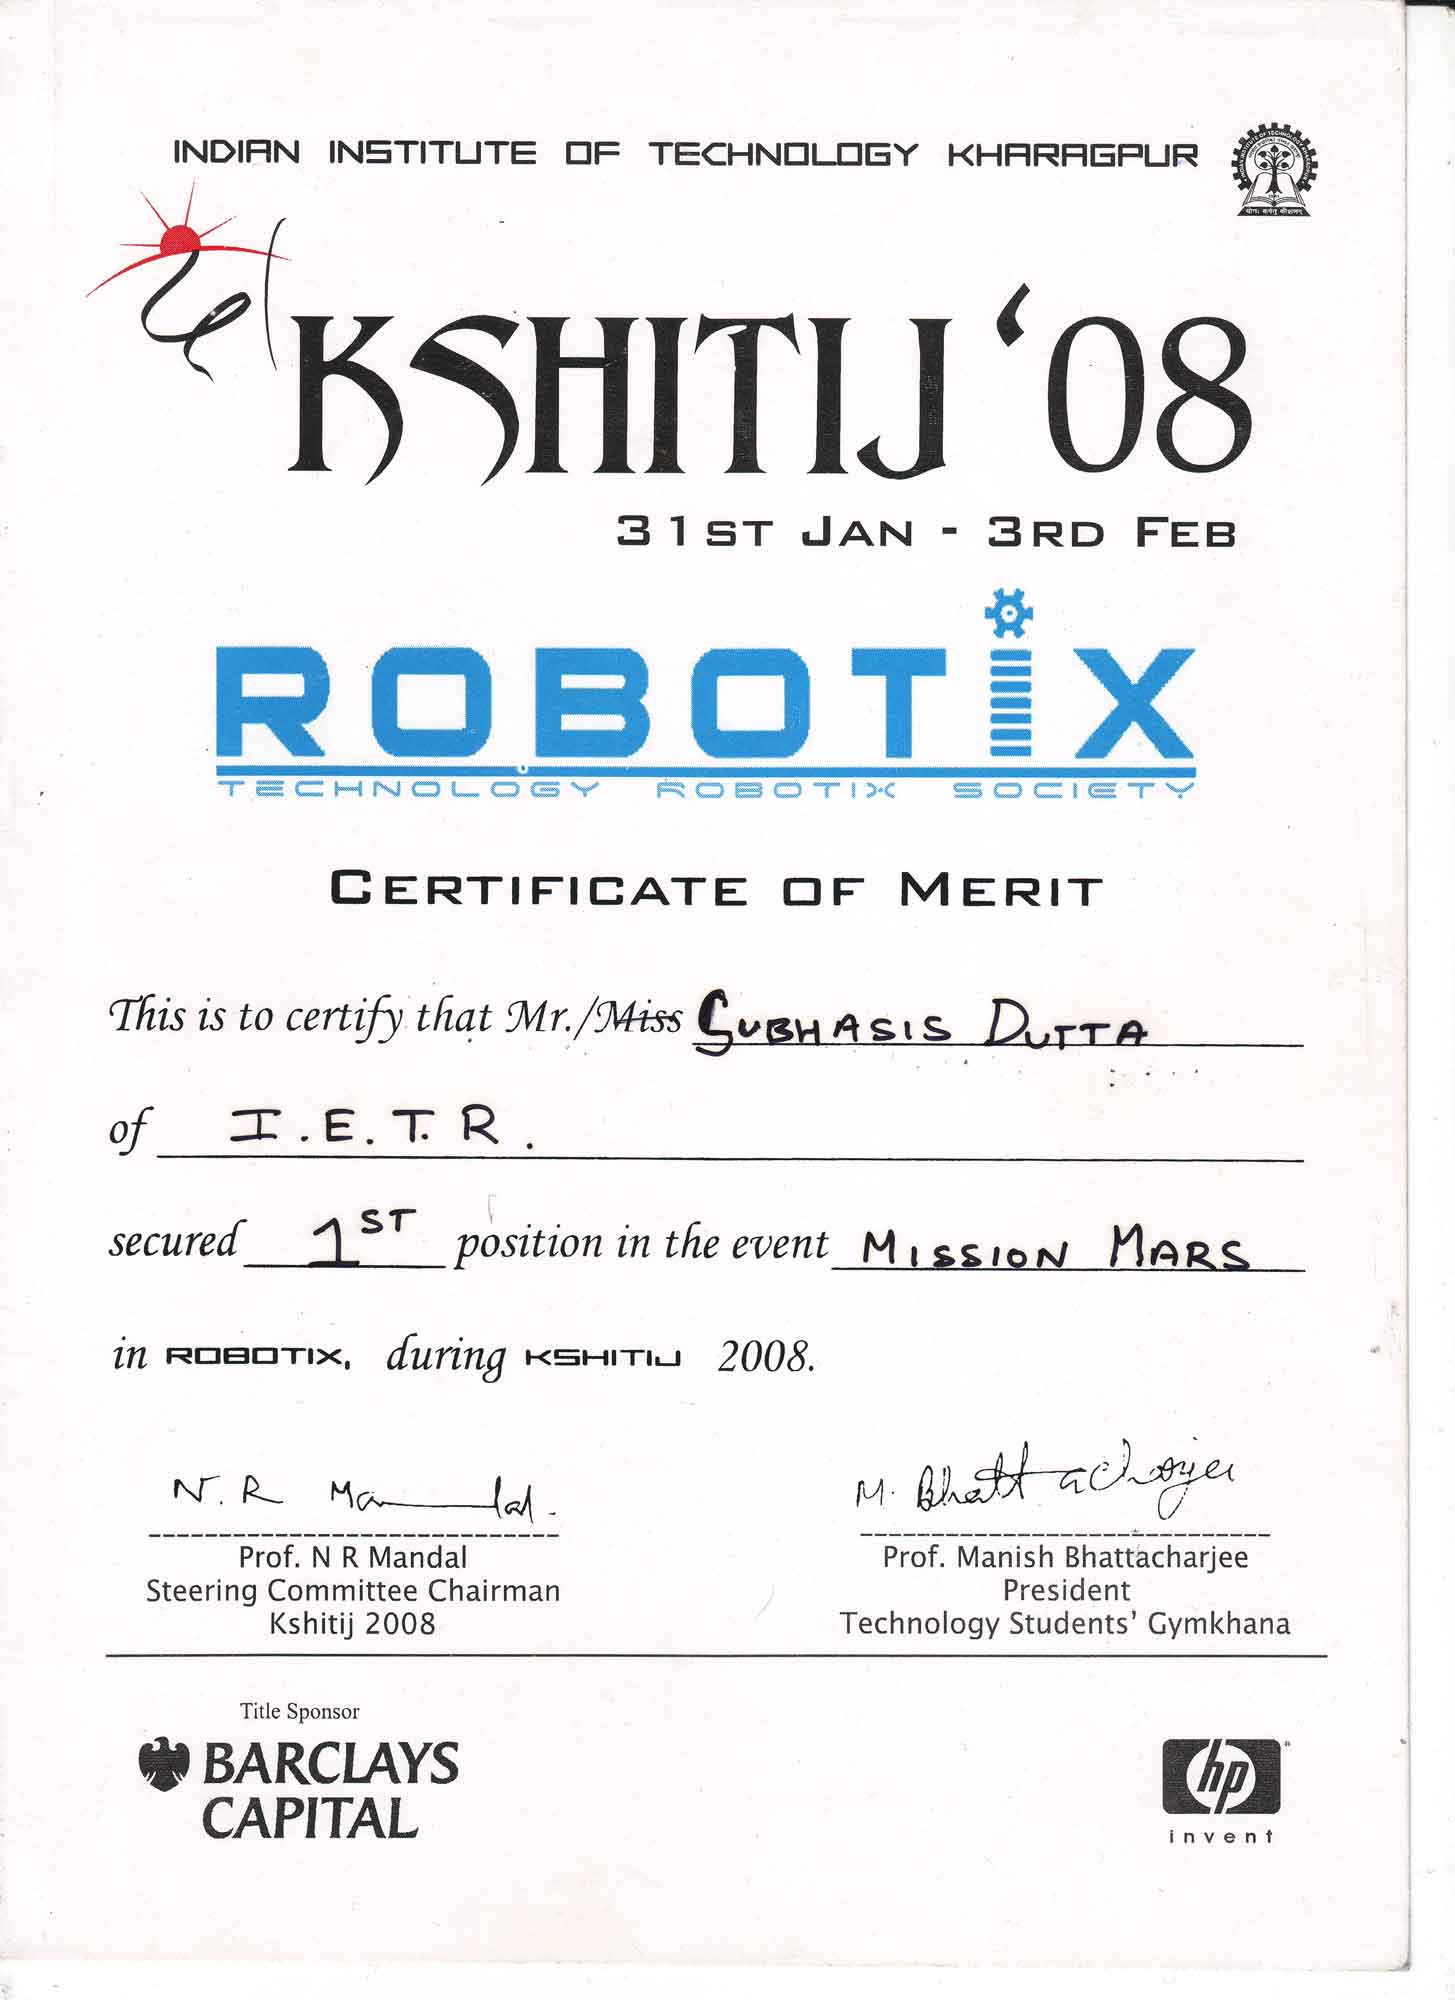 INDIAN INSTITUTE OF TECHNOLOGY KHARAGPUR
KSHITIJ '08
31ST JAN - 3RD FEB
ROBOTIX
TECHNOLOGY ROBOTIX SOCIETY
CERTIFICATE OF MERIT
This is to certify that Mr./Miss SUBHASIS DUTTA
of I.E.T.R.
secured 1ST position in the event MISSION MARS
in ROBOTIX, during KSHITIJ 2008.
N.R Mandal. M. Bhattacharjee
Prof. N R Mandal Prof. Manish Bhattacharjee
Steering Committee Chairman President
Kshitij 2008 Technology Students' Gymkhana
Title Sponsor
BARCLAYS
CAPITAL
hp
invent